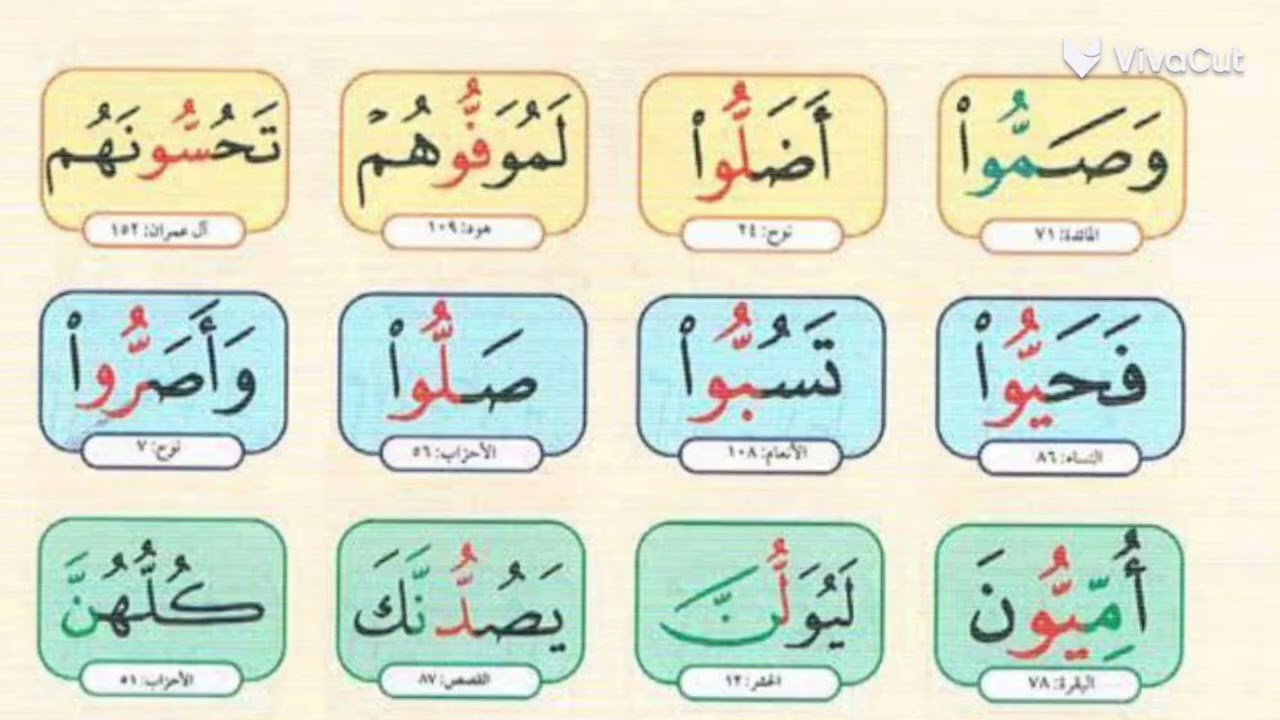 VivaCut
وَصَمُّواْ أَضَلُّواْ لَمُوَفُّوهُمۡ تَحُسُّونَهُم
المائدة: ٧١ نوح: ٢٤ هود: ١٠٩ آل عمران: ١٥٢
فَحَيُّواْ تَسُبُّواْ صَلُّواْ وَأَصَرُّواْ
النساء: ٨٦ الأنعام: ١٠٨ الأحزاب: ٥٦ نوح: ٧
أُمِّيُّونَ لَيُوَلُّنَّ يَصُدُّنَّكَ كُلُّهُنَّ
البقرة: ٧٨ الحشر: ١٢ القصص: ٨٧ الأحزاب: ٥١